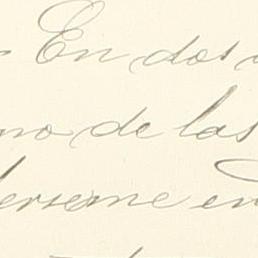 En dos
no de las
derseme en